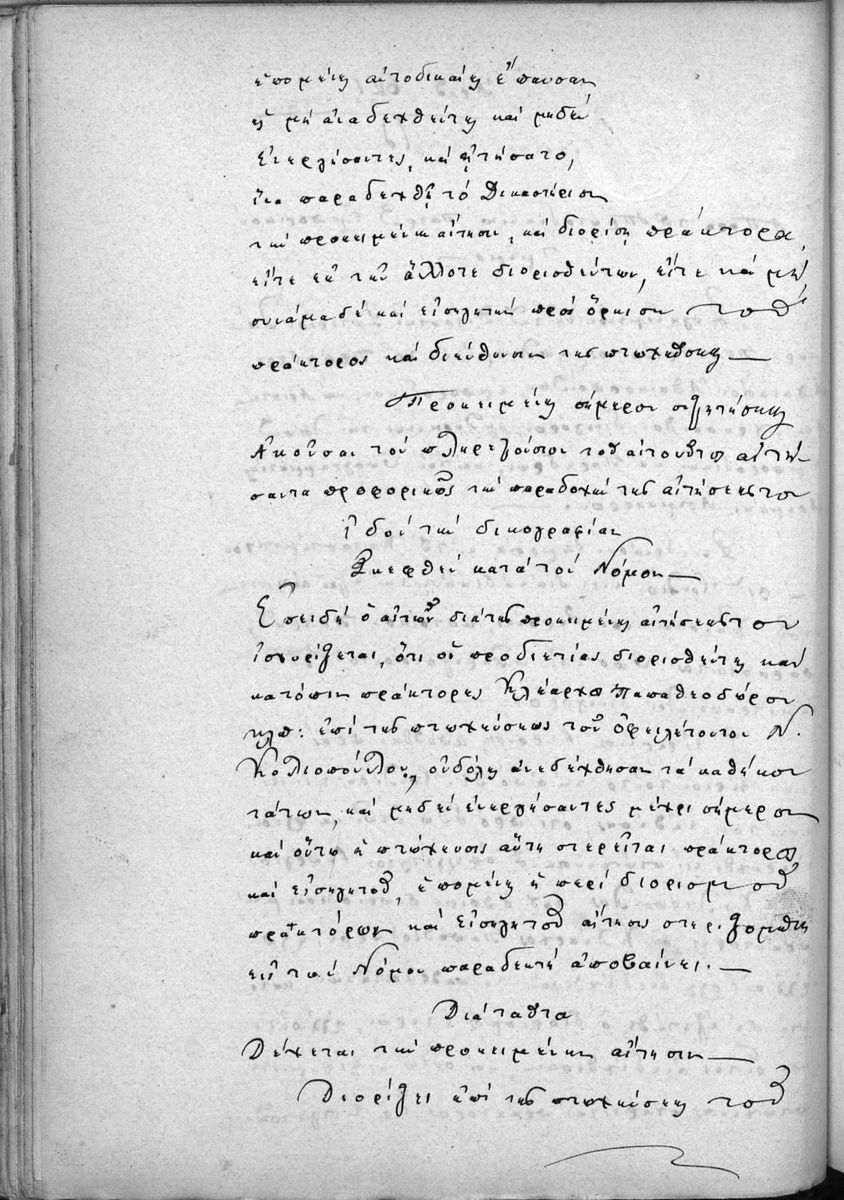 επομένως αυτοδικαίως έπαυσαν
ως μη αναδεχθέντες και μηδέν
ενεργήσαντες, και ητήσατο,
ίνα παραδεχθή το Δικαστήριον
την προκειμένην αίτησιν, και διορίση πράκτορα,
είτε εκ των άλλοτε διορισθέντων, είτε και μη
συνάμα δε και εισηγητήν προς όρκισιν του
πράκτορος και διεύθυνσιν της πτωχεύσεως —
Προκειμένης σήμερον συζητήσεως
Ακούσαν τον πληρεξούσιον του αιτούντος αιτή
σαντα προφορικώς την παραδοχήν της αιτήσεώς του
Ιδόν την δικογραφίαν
Σκεφθέν κατά τον Νόμον —
Επειδή ο αιτών διά της προκειμένης αιτήσεώς του
ισχυρίζεται, ότι οι προ διετίας διορισθέντες και
κατόπιν πράκτορες Κλέαρχος Παπαθεοδώρου
κλπ: επί της πτωχεύσεως του οφειλέτου του Ν.
Κολιοπούλου, ουδόλως ανεδέχθησαν τα καθήκον
τά των, και μηδέν ενεργήσαντες μέχρι σήμερον
και ούτω η πτώχευσις αύτη στερείται πράκτορος
και εισηγητού, επομένως η περί διορισμού
πρακτόρων και εισηγητού αίτησις στηριζομένη
εις τον Νόμον παραδεκτή αποβαίνει. —
Διά ταύτα
Δέχεται την προκειμένην αίτησιν —
Διορίζει επί της πτωχεύσεως του